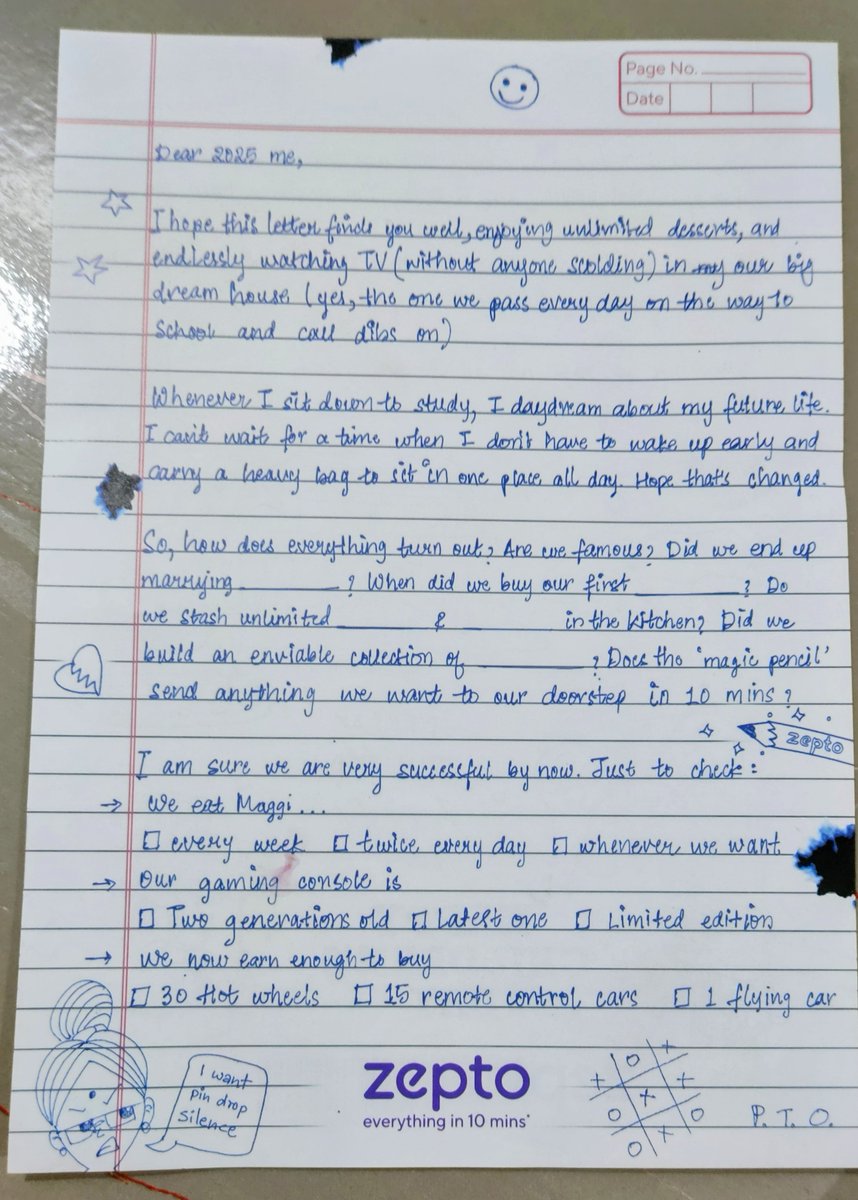 Page No.
Date
Dear 2025 me,
I hope this letter finds you well, enjoying unlimited desserts, and
endlessly watching TV (without anyone scolding) in my our big
dream house (yes, the one we pass every day on the way to
school and call dibs on)
Whenever I sit down to study, I daydream about my future life.
I can't wait for a time when I don't have to wake up early and
carry a heavy bag to sit in one place all day. Hope that's changed.
So, how does everything turn out? Are we famous? Did we end up
marrying __________ ? When did we buy our first __________ ? Do
we stash unlimited __________ & __________ in the kitchen? Did we
build an enviable collection of __________ ? Does the 'magic pencil'
send anything we want to our doorstep in 10 mins?
zepto
I am sure we are very successful by now. Just to check:
→ We eat Maggi...
☐ every week ☐ twice every day ☐ whenever we want
→ Our gaming console is
☐ Two generations old ☐ Latest one ☐ Limited edition
→ We now earn enough to buy
☐ 30 Hot wheels ☐ 15 remote control cars ☐ 1 flying car
I want
pin drop
silence
zepto
everything in 10 mins*
P. T. O.